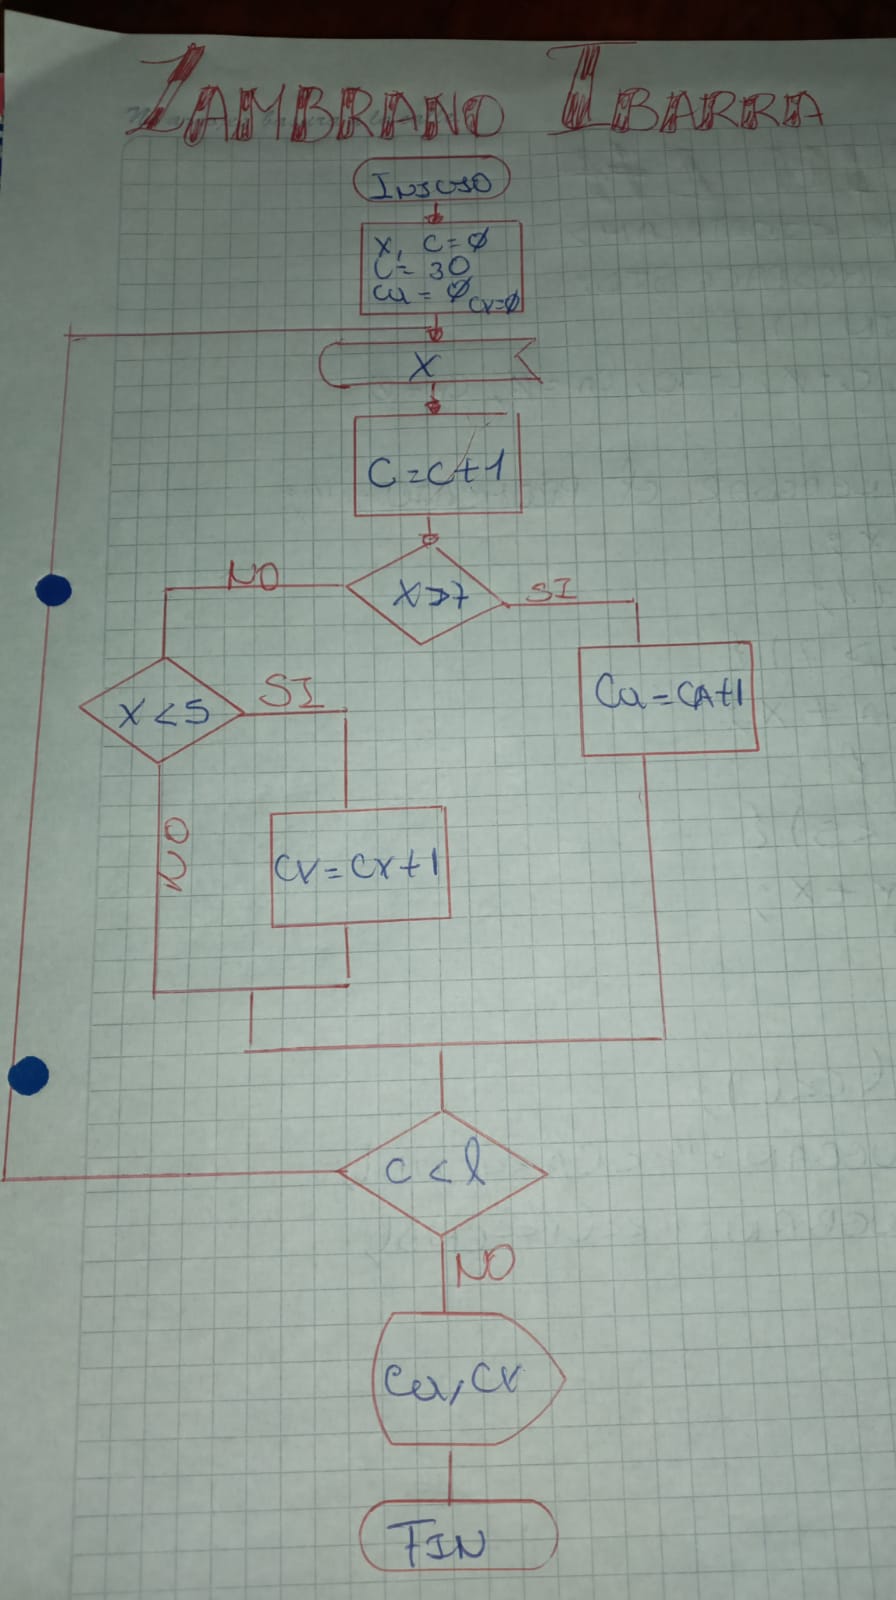 ZAMBRANO IBARRA
INICIO
X, C=Ø
C= 30
Ca = Ø CV=Ø
X
C=C+1
X>7
NO
SI
X<5
SI
Ca=CA+1
NO
CV=CX+1
C<l
NO
Ca, CV
FIN